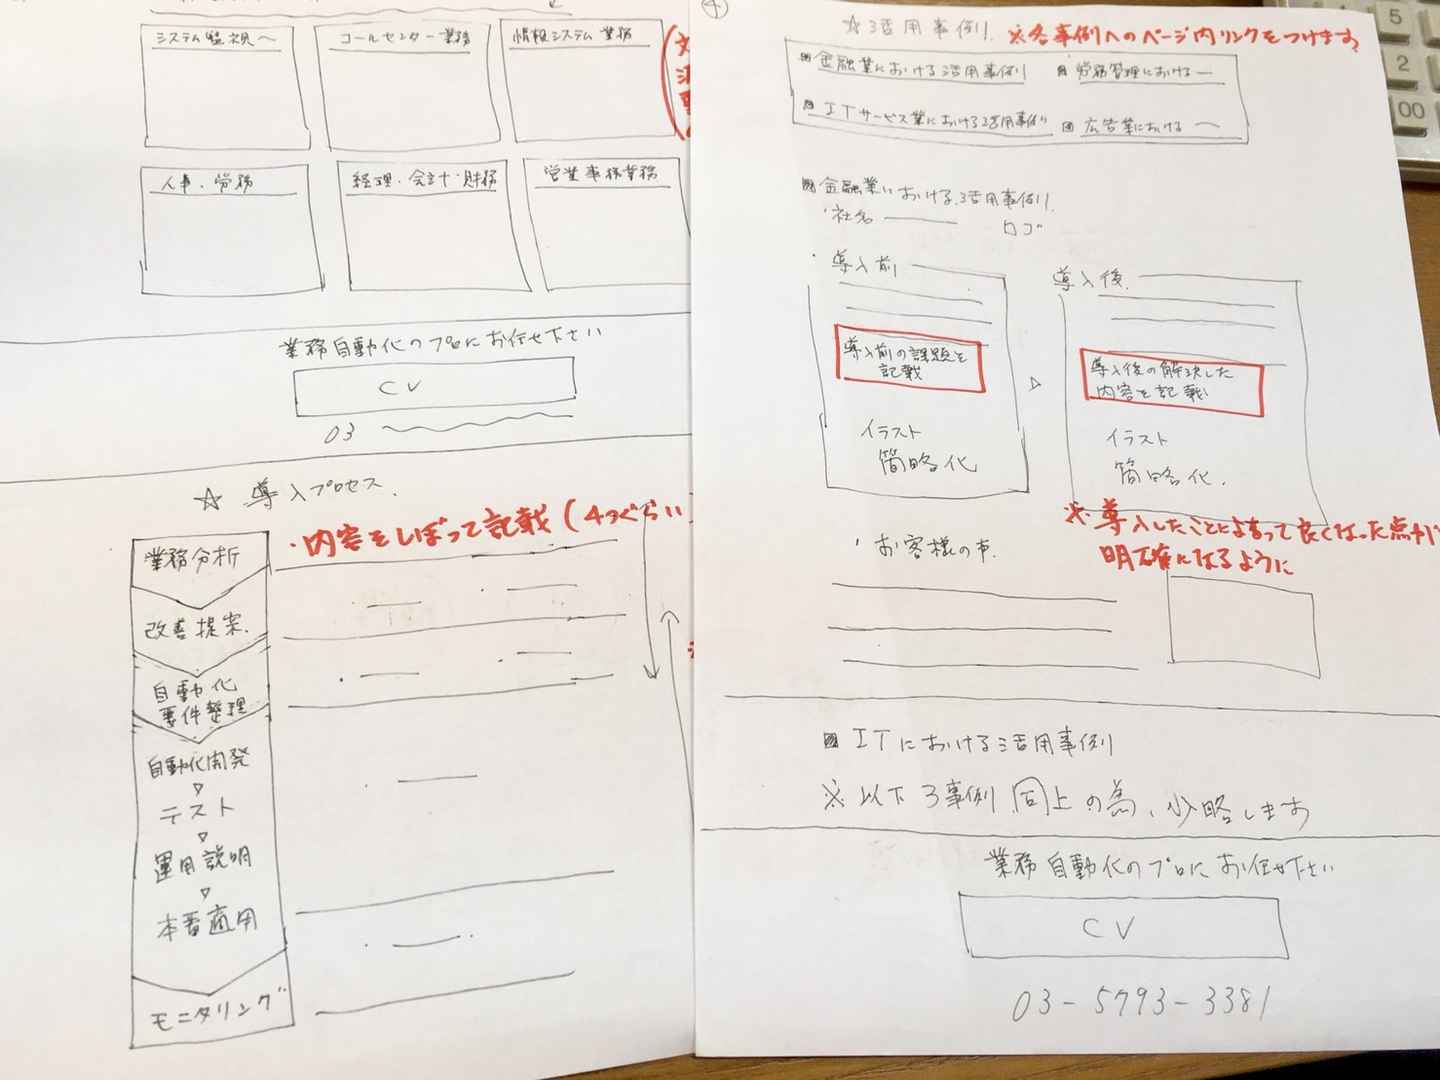 システム監視〜
コールセンター業務
情報システム業務
人事・労務
経理・会計・財務
営業事務業務
業務自動化のプロにお任せ下さい
CV
03
☆ 導入プロセス
・内容をしぼって記載(4つぐらい)
業務分析
改善提案
自動化
要件整理
自動化開発
▽
テスト
▽
運用説明
▽
本番適用
モニタリング
④
☆活用事例
※各事例へのページ内リンクをつけます
金融業における活用事例
労務管理における―
ITサービス業における活用事例
広告業における〜
金融業における活用事例
・社名
ロゴ
・導入前
導入後
導入前の課題を
記載
導入後の解決した
内容を記載
イラスト
簡略化
イラスト
簡略化
※導入したことによって良くなった点が
明確になるように
・お客様の声
ITにおける活用事例
※以下3事例 同上の為、省略します
業務自動化のプロにお任せ下さい
CV
03-5793-3381
5
2
00